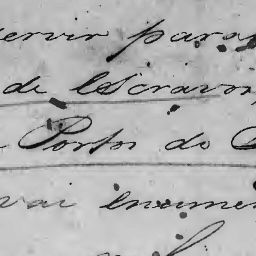 servir para
de Escravo
Porto do
vai enume